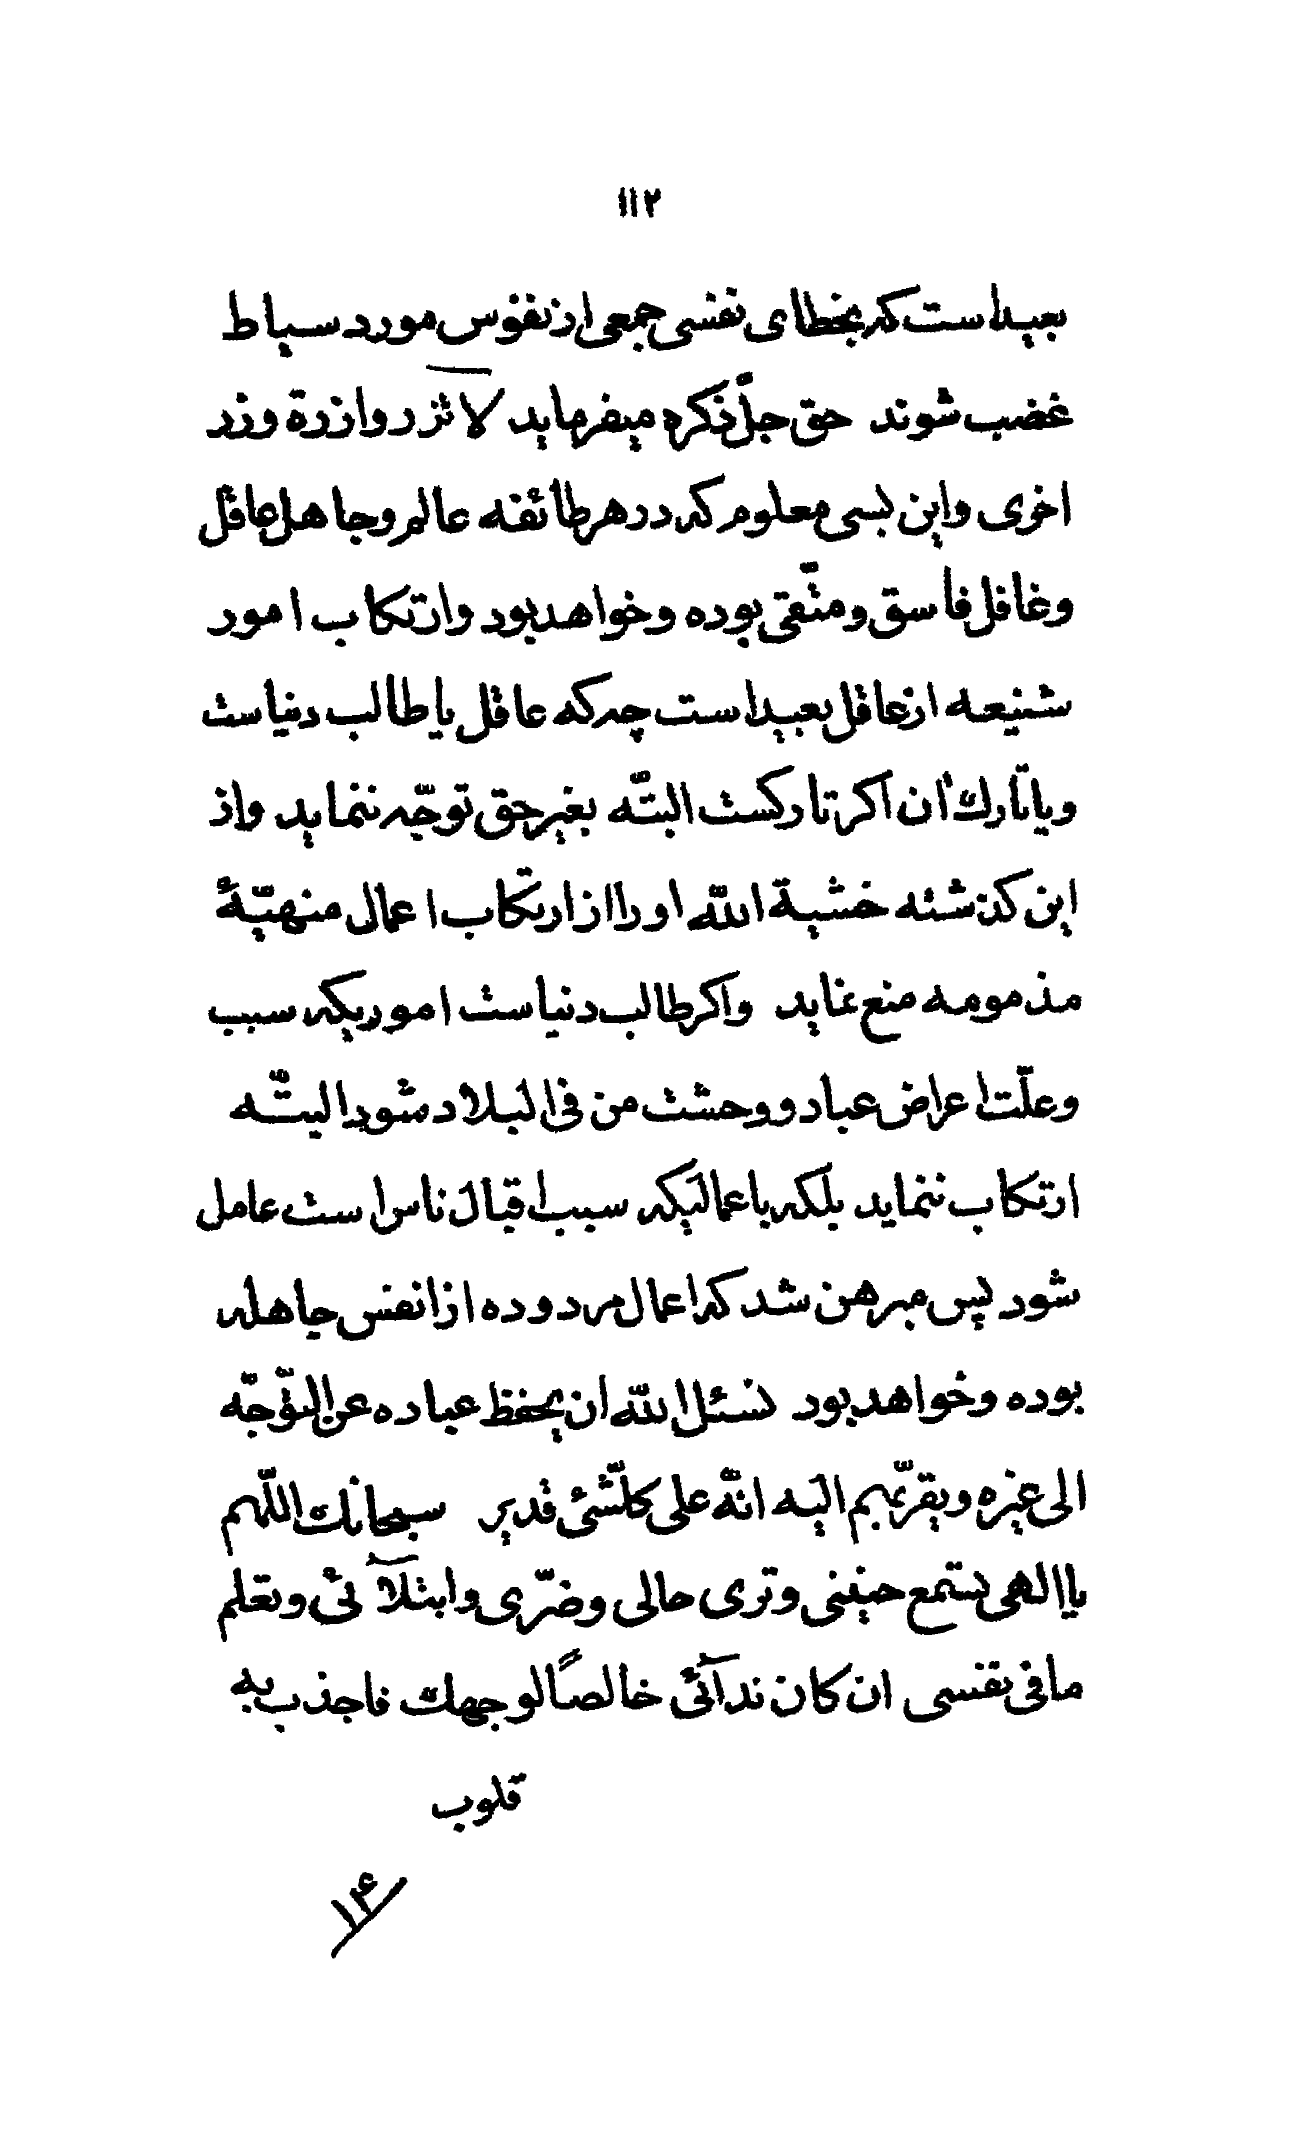 ۱۱۲
بعید است که بخطای نفسی جمعی از نفوس مورد سیاط
غضب شوند حق جلّ ذکره میفرماید لا تزر وازرة وزر
اخری و این بسی معلوم که در هر طائفه عالم و جاهل عاقل
و غافل فاسق و متّقی بوده و خواهد بود و ارتکاب امور
شنیعه از عاقل بعید است چه که عاقل یا طالب دنیاست
و یا تارک آن اکر تارکست البتّه بغیر حق توجّه ننماید و از
این کذشته خشیة الله او را از ارتکاب اعمال منهیّهٔ
مذمومه منع نماید و اکر طالب دنیاست اموریکه سبب
و علّت اعراض عباد و وحشت من فی البلاد شود البتّه
ارتکاب ننماید بلکه باعمالیکه سبب اقبال ناس است عامل
شود پس مبرهن شد که اعمال مردوده از انفس جاهله
بوده و خواهد بود نسئل الله ان یحفظ عباده عن التوّجّه
الی غیره و یقرّبهم الیه انّه علی کلّشئی قدیر سبحانک اللّهم
یا الهی تستمع حنینی و تری حالی و ضرّی و ابتلآئی و تعلم
ما فی نفسی ان کان ندآئی خالصاً لوجهک فاجذب به
قلوب
۱۴